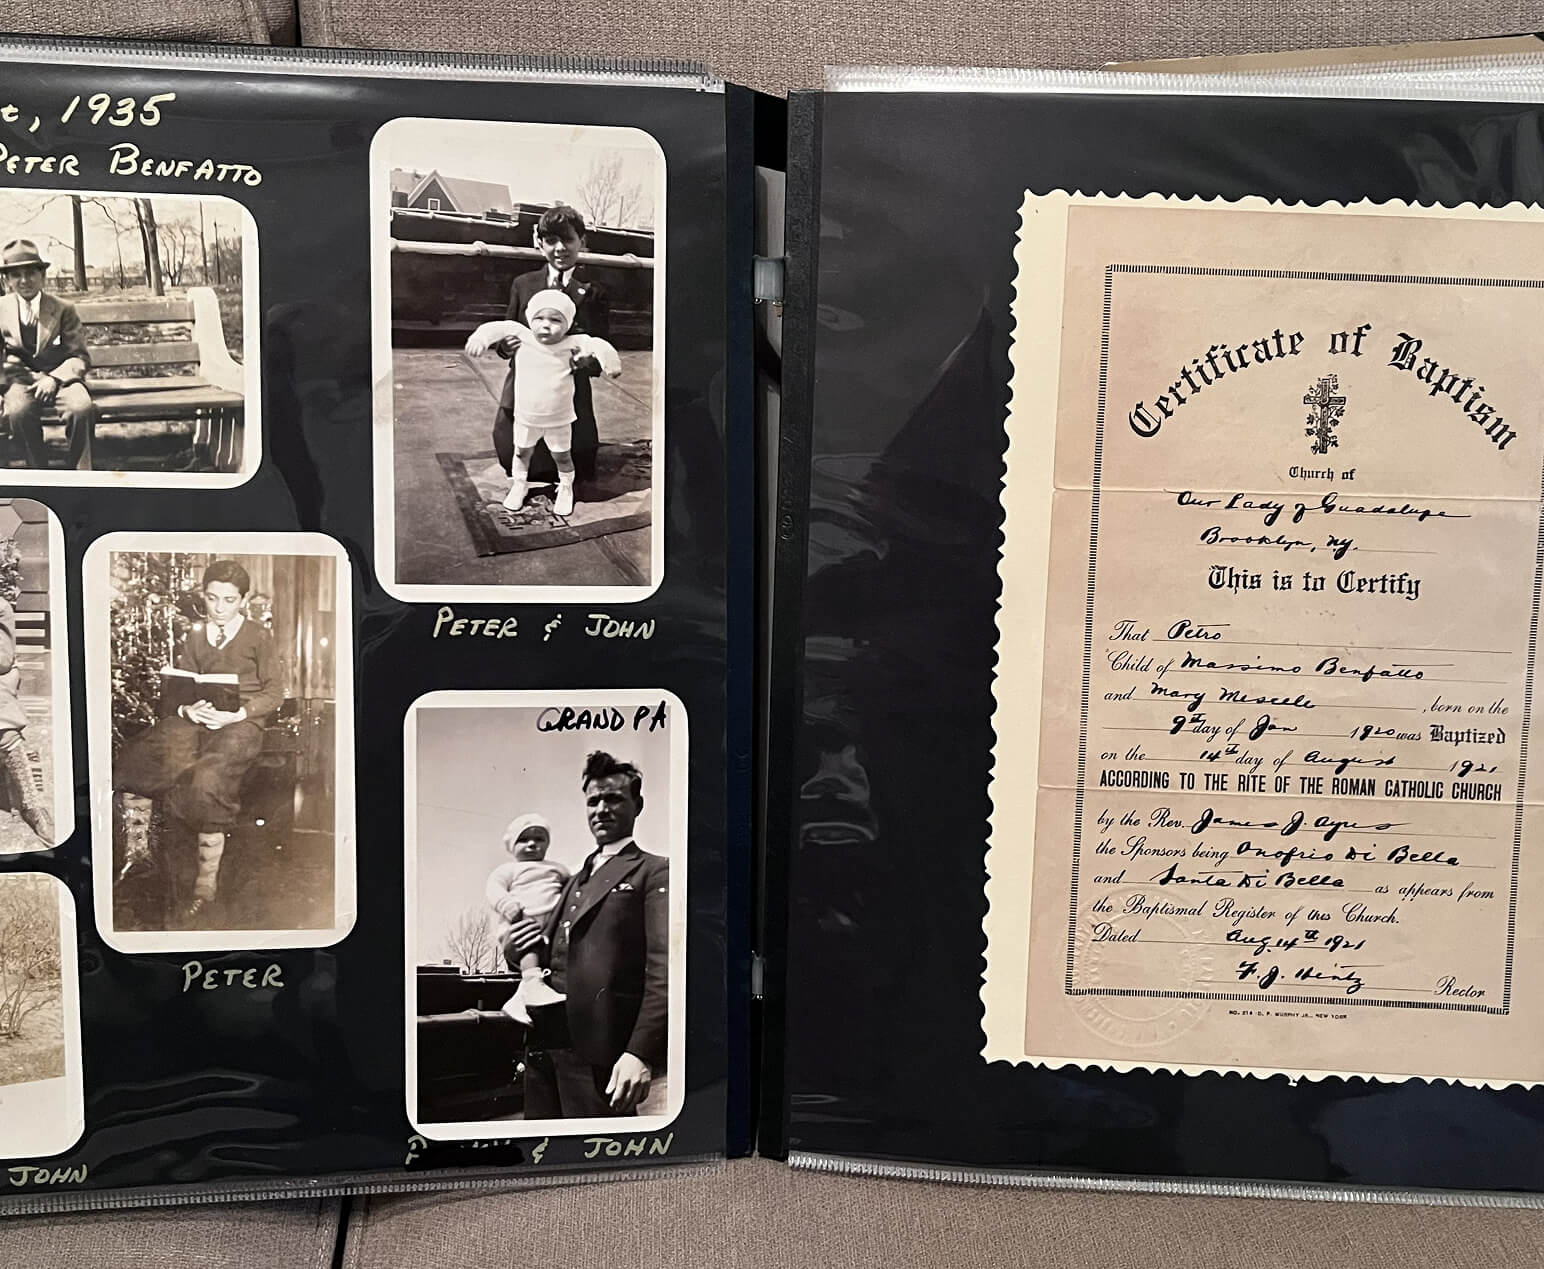 , 1935
PETER BENFATTO
PETER & JOHN
PETER
GRANDPA
& JOHN
JOHN
Certificate of Baptism
Church of
Our Lady of Guadalupe
Brooklyn, Ny.
This is to Certify
That Petro
Child of Massimo Benfatto
and Mary Miscele, born on the
9th day of Jan 1920 was Baptized
on the 14th day of August 1921
ACCORDING TO THE RITE OF THE ROMAN CATHOLIC CHURCH
by the Rev. James J. Ayres
the Sponsors being Onofrio Di Bella
and Santa Di Bella as appears from
the Baptismal Register of this Church.
Dated Aug. 14th 1921
F. J. Hintz Rector
NO. 214 D. P. MURPHY JR., NEW YORK